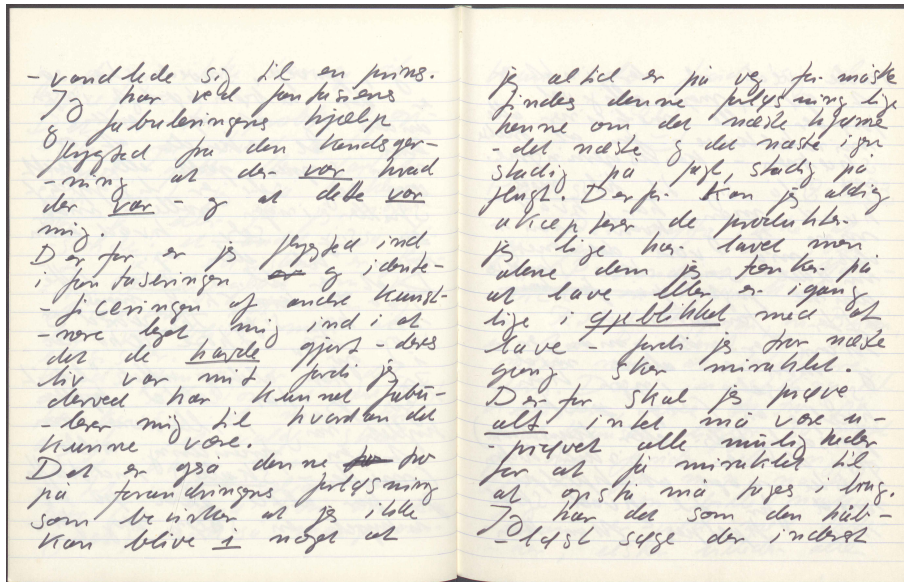 - vandlede sig til en prins.
Jeg har ved fantasiens
og fabuleringens hjælp
flygted fra den kendsger-
-ning at der var hvad
der var - og at dette var
mig.
Derfor er jeg flygted ind
i fantaseringen og idente-
-ficeringen af andre kunst-
-nere leget mig ind i at
det de havde gjort - deres
liv var mit fordi jeg
derved har kunnet fabu-
-lerer mig til hvordan det
kunne være.
Det er også denne tro
på forandringens forløsning
som bevirker at jeg ikke
kan blive i noget at
jeg altid er på vej for måske
findes denne forløsning lige
henne om det næste hjørne
- det næste og det næste igen
stadig på jagt, stadig på
flugt. Derfor kan jeg aldrig
akcepterer de produkter
jeg lige har lavet men
alene dem jeg tænker på
at lave eller er igang
lige i øjeblikket med at
lave - fordi jeg tror næste
gang sker miraklet.
Derfor skal jeg prøve
alt intet må være u-
-prøvet alle muligheder
for at få miraklet til
at opstå må tages i brug.
Jeg har det som den håb-
-løst syge der inderst